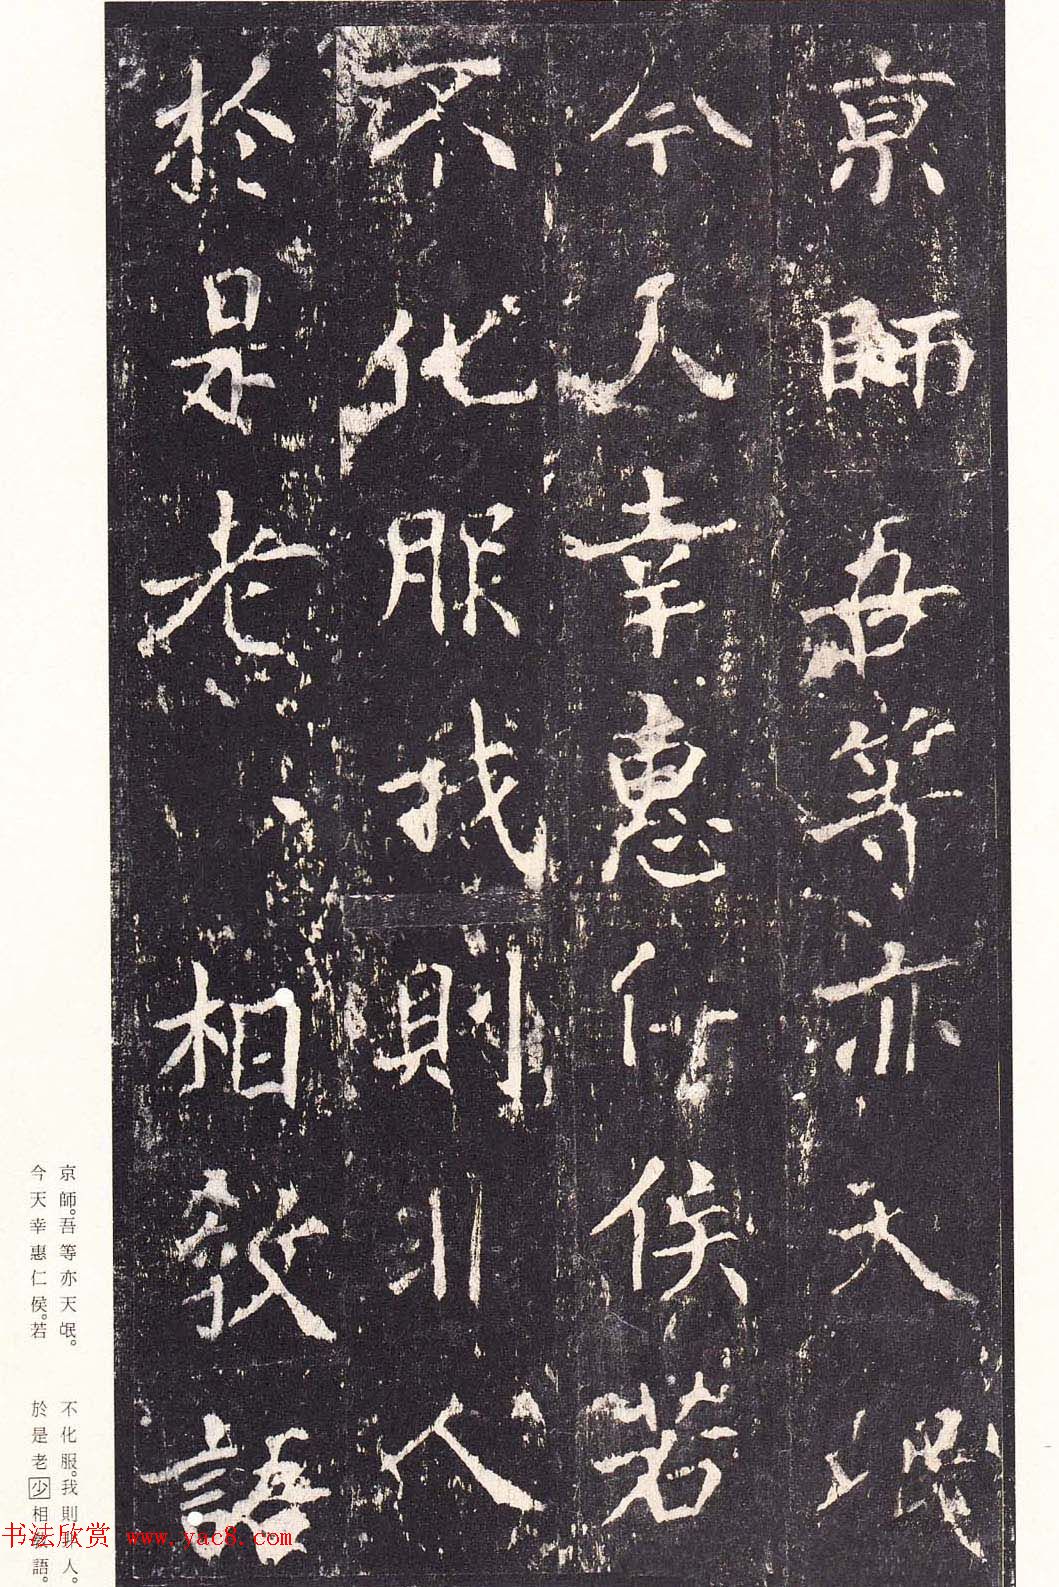 京師吾等亦天氓
今天幸惠仁侯若
不化服我則非人
於是老相教語
京師。吾等亦天氓。
今天幸惠仁侯。若
不化服。我則 人。
於是老少相 語。
书法欣赏 www.yac8.com